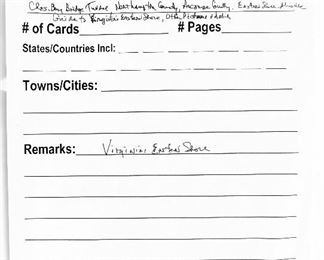 Ches. Bay Bridge Tunnel Northampton County, Accomac County, Eastern Shore
Guide to Virginia's Eastern Shore,
# of Cards # Pages
States/Countries Incl:
Towns/Cities:
Remarks: Virginia Eastern Shore